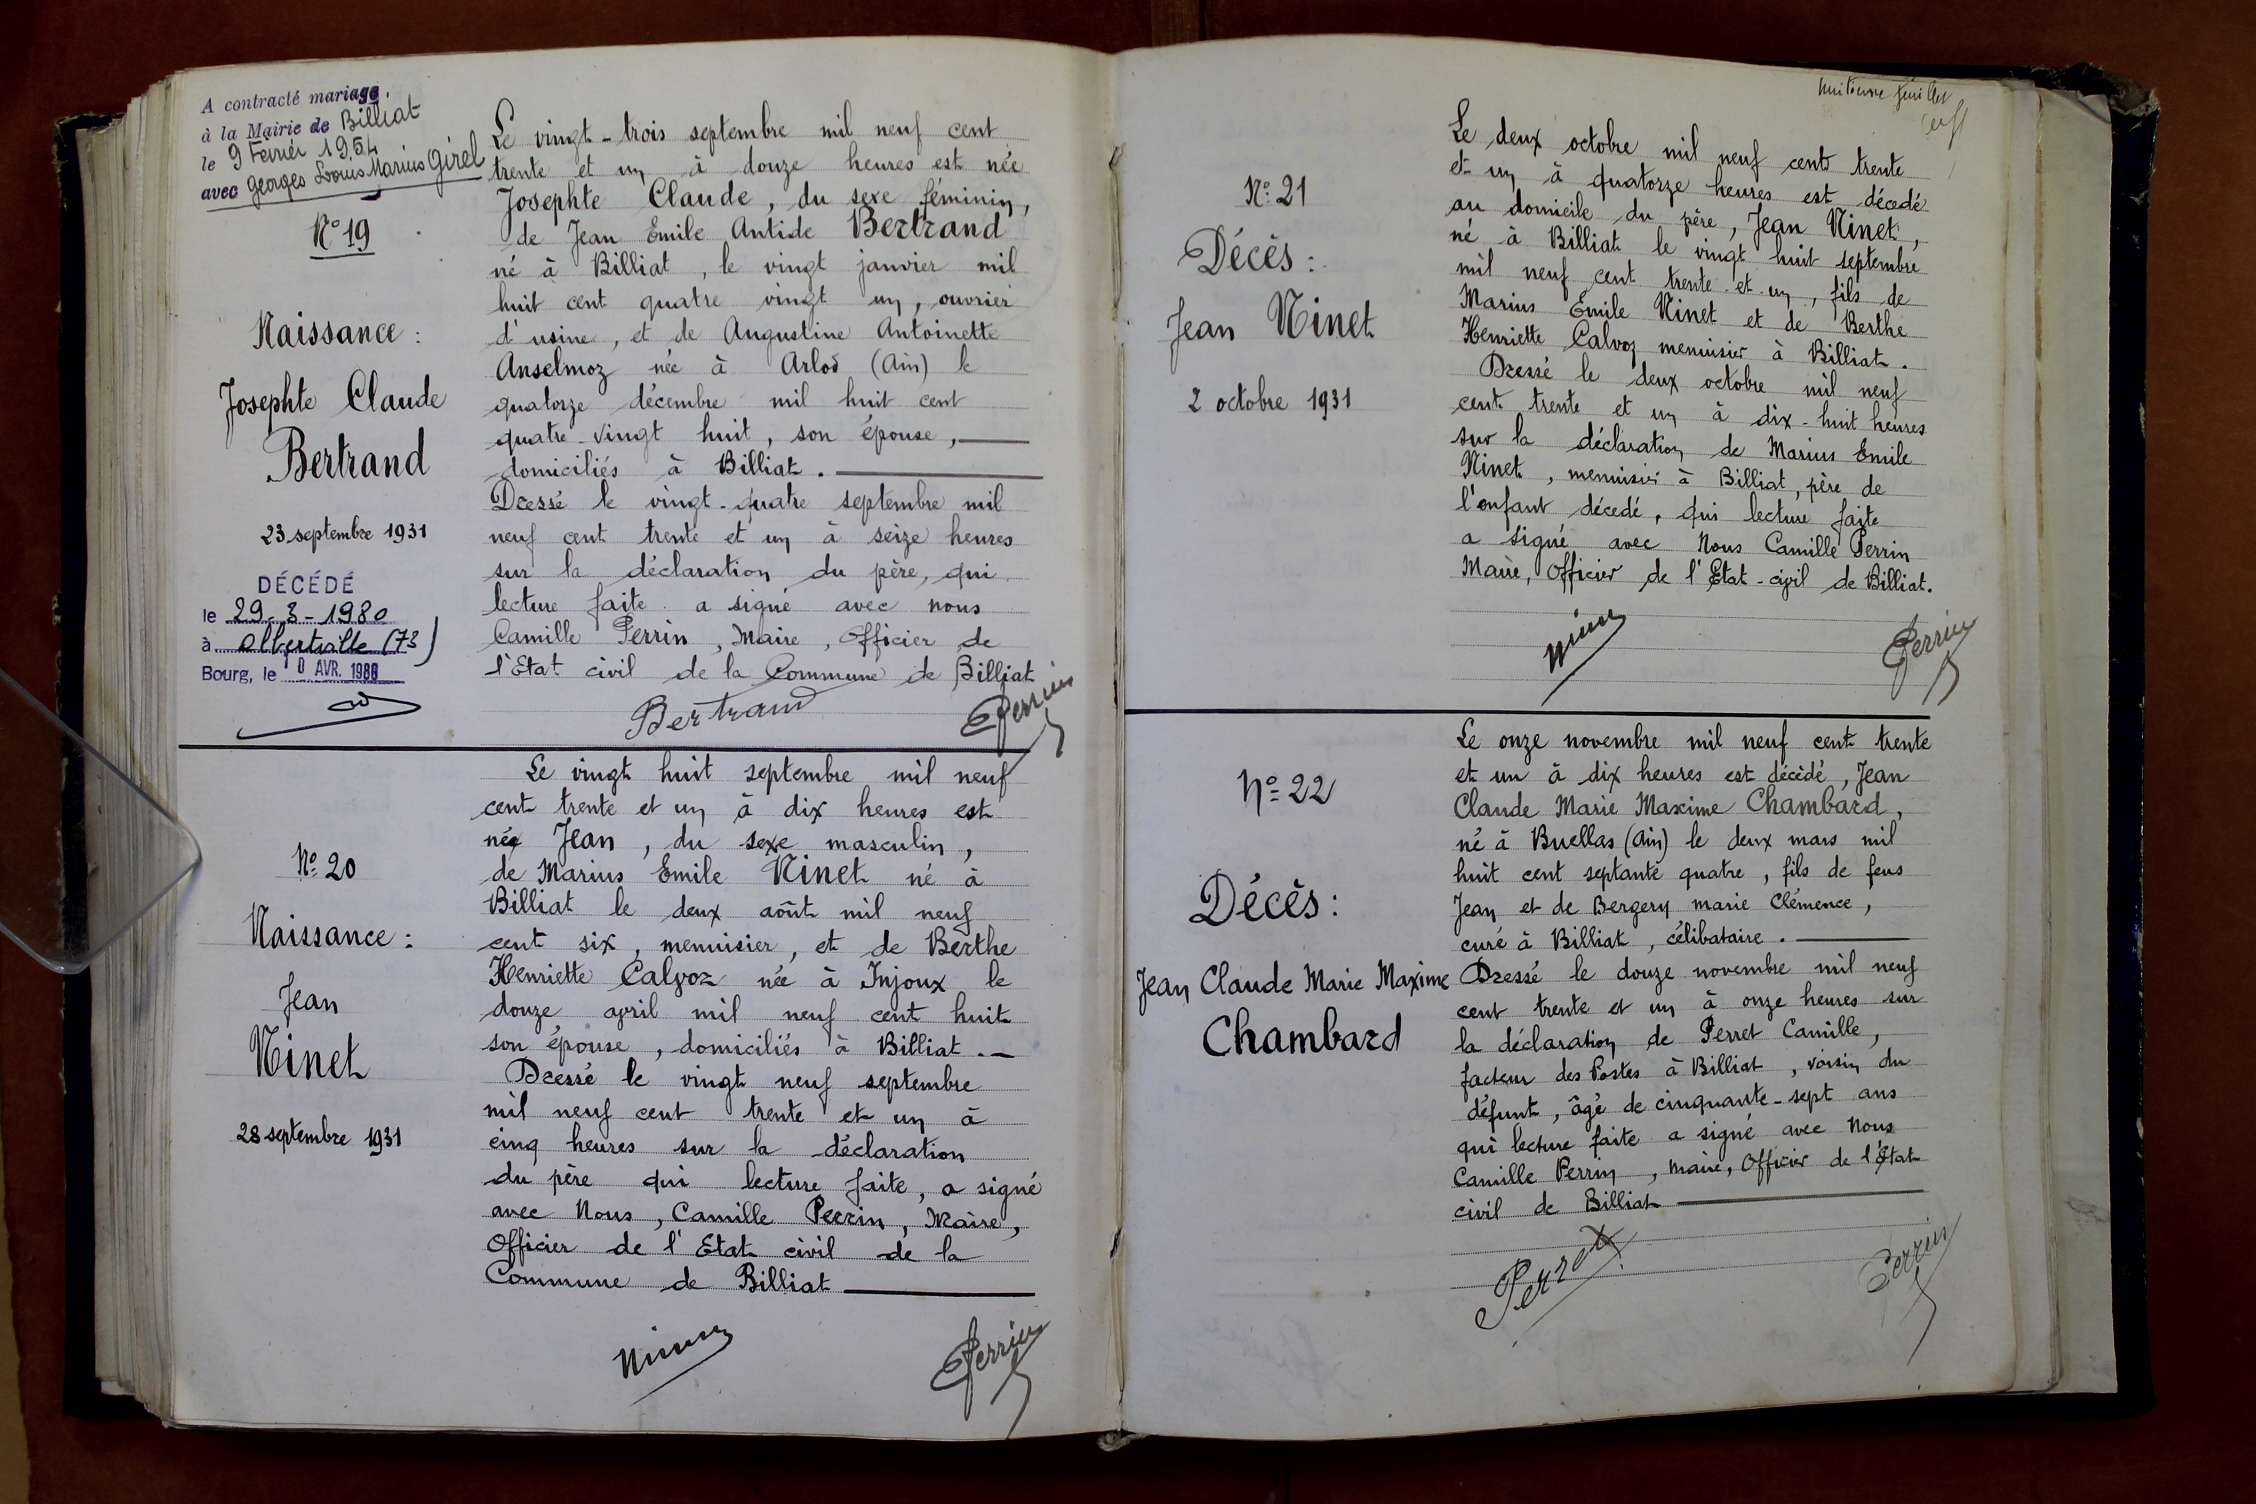 A contracté mariage
à la Mairie de Billiat
le 9 Février 1954
avec Georges Louis Marius Girel
N° 19
Naissance :
Josephte Claude
Bertrand
23 septembre 1931
DÉCÉDÉ
le 29-3-1980
à Albertville (73)
Bourg, le 10 AVR. 1980
Le vingt-trois septembre mil neuf cent
trente et un à douze heures est née
Josephte Claude, du sexe féminin,
de Jean Emile Antide Bertrand
né à Billiat, le vingt janvier mil
huit cent quatre vingt un, ouvrier
d'usine, et de Augustine Antoinette
Anselmoz née à Arlod (Ain) le
quatorze décembre mil huit cent
quatre-vingt huit, son épouse,
domiciliés à Billiat.
Dressé le vingt-quatre septembre mil
neuf cent trente et un à seize heures
sur la déclaration du père, qui
lecture faite a signé avec nous
Camille Perrin, Maire, Officier de
l'Etat civil de la Commune de Billiat
Bertrand
Perrin
N° 20
Naissance :
Jean
Ninet
28 septembre 1931
Le vingt huit septembre mil neuf
cent trente et un à dix heures est
née Jean, du sexe masculin,
de Marius Emile Ninet né à
Billiat le deux août mil neuf
cent six, menuisier, et de Berthe
Henriette Calvoz née à Injoux le
douze april mil neuf cent huit
son épouse, domiciliés à Billiat.
Dressé le vingt neuf septembre
mil neuf cent trente et un à
cinq heures sur la déclaration
du père qui lecture faite, a signé
avec Nous, Camille Perrin, Maire,
Officier de l'Etat civil de la
Commune de Billiat
Ninet
Perrin
huitième feuillet
N° 21
Décès :
Jean Ninet
2 octobre 1931
Le deux octobre mil neuf cent trente
et un à quatorze heures est décédé
au domicile du père, Jean Ninet,
né à Billiat le vingt huit septembre
mil neuf cent trente-et-un, fils de
Marius Emile Ninet et de Berthe
Henriette Calvoz menuisier à Billiat.
Dressé le deux octobre mil neuf
cent trente et un à dix-huit heures
sur la déclaration de Marius Emile
Ninet, menuisier à Billiat, père de
l'enfant décedé, qui lecture faite
a signé avec Nous Camille Perrin
Maire, Officier de l'Etat-civil de Billiat.
Ninet
Perrin
N° 22
Décès :
Jean Claude Marie Maxime
Chambard
Le onze novembre mil neuf cent trente
et un à dix heures est décédé, Jean
Claude Marie Maxime Chambard,
né à Buellas (Ain) le deux mars mil
huit cent septante quatre, fils de feus
Jean et de Bergery marie Clémence,
curé à Billiat, célibataire.
Dressé le douze novembre mil neuf
cent trente et un à onze heures sur
la déclaration de Perret Camille,
facteur des Postes à Billiat, voisin du
défunt, âgé de cinquante-sept ans
qui lecture faite a signé avec Nous
Camille Perrin, maire, Officier de l'Etat
civil de Billiat
Perret
Perrin